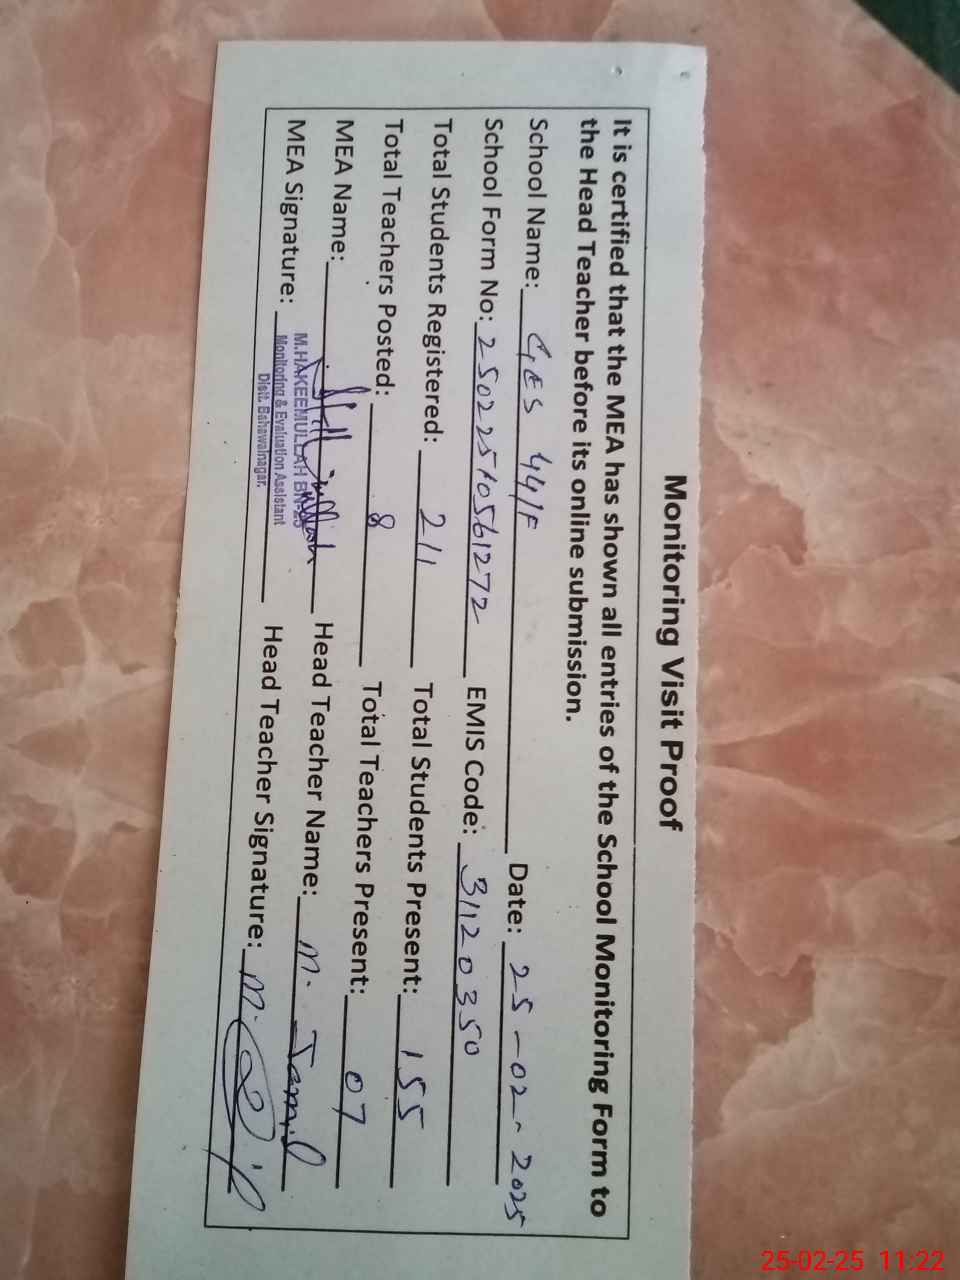 Monitoring Visit Proof
It is certified that the MEA has shown all entries of the School Monitoring Form to
the Head Teacher before its online submission.
School Name: GES 44/F Date: 25-02-2025
School Form No: 25022510561272 EMIS Code: 31120350
Total Students Registered: 211 Total Students Present: 155
Total Teachers Posted: 8 Total Teachers Present: 07
MEA Name: Head Teacher Name: M. Jamil
MEA Signature: Head Teacher Signature:
M.HAKEEMULLAH BN-25
Monitoring & Evaluation Assistant
Distt. Bahawalnagar.
25-02-25 11:22